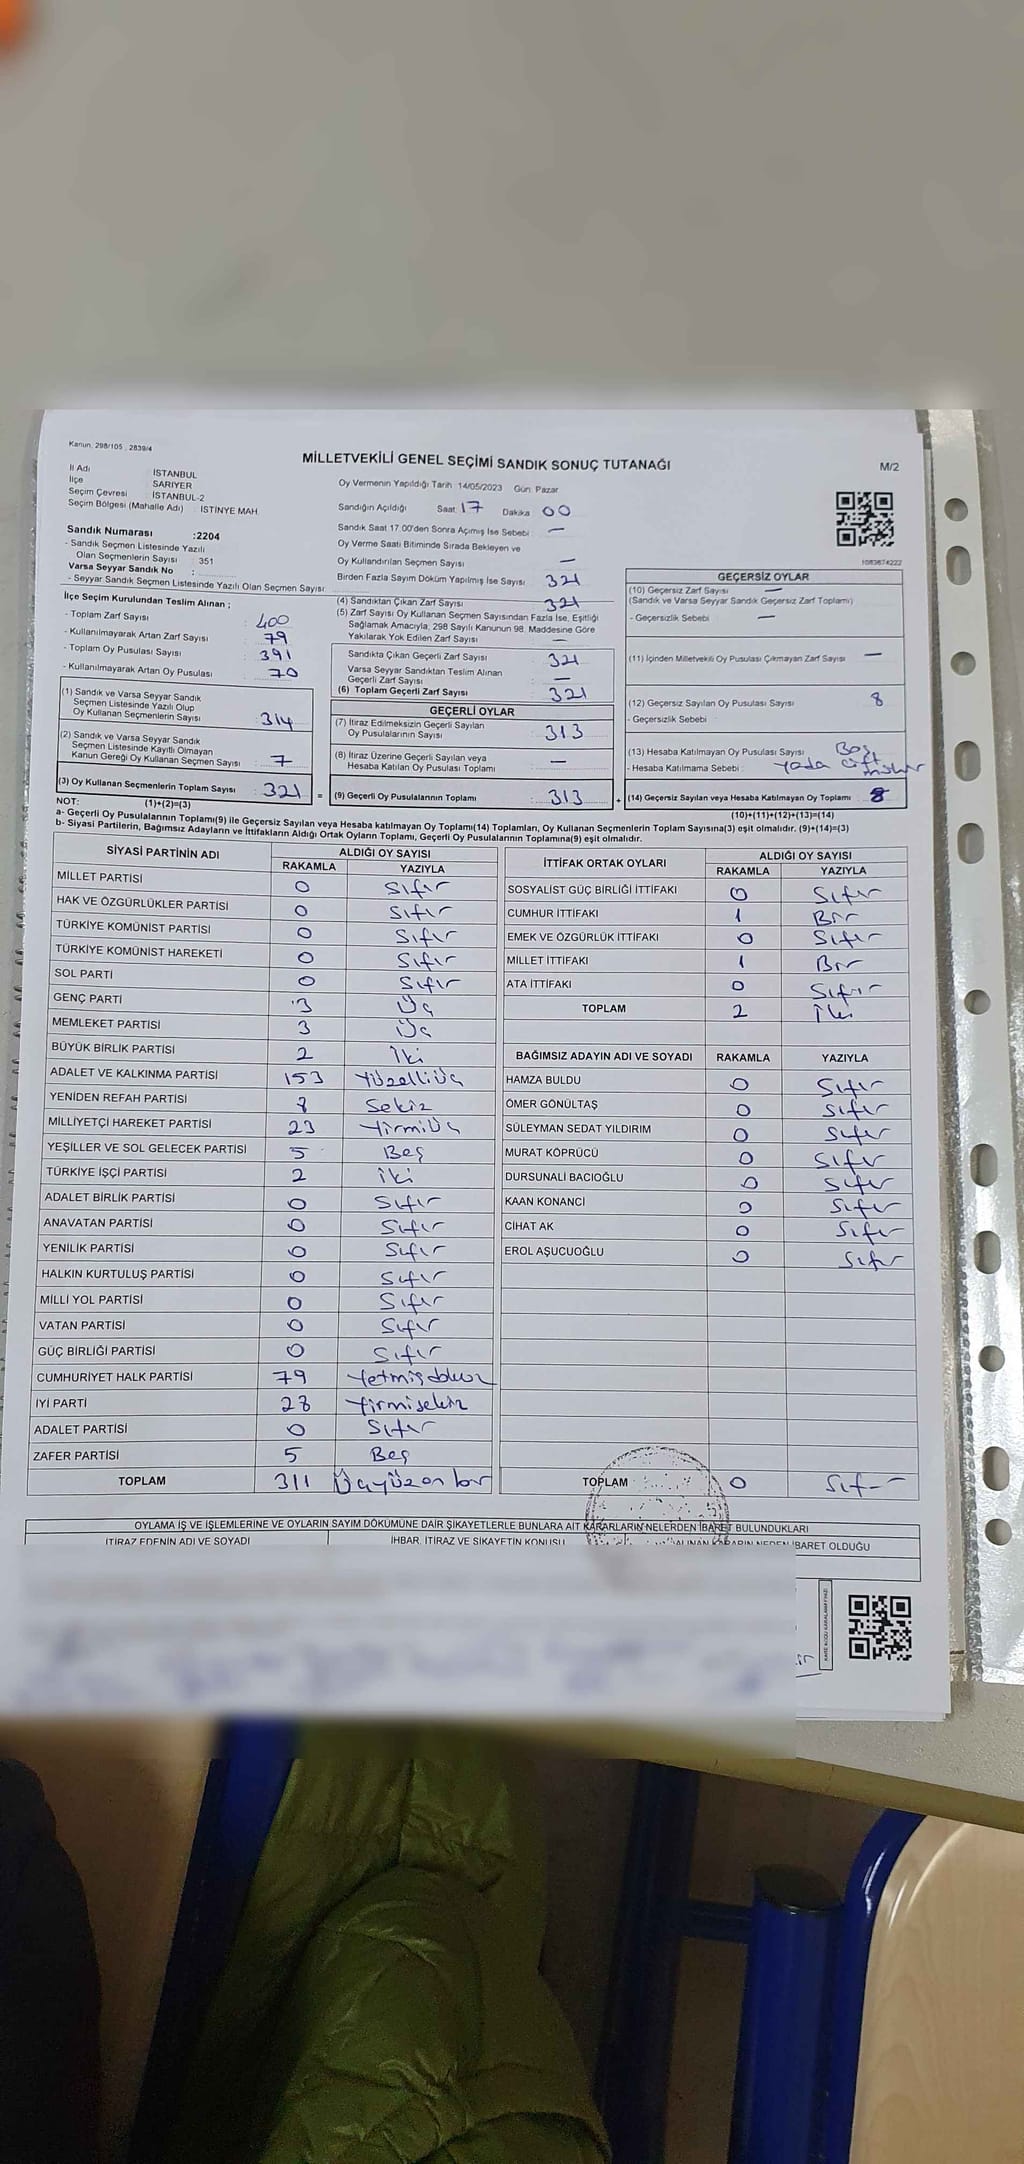 Kanun, 298/105 , 2839/4
MİLLETVEKİLİ GENEL SEÇİMİ SANDIK SONUÇ TUTANAĞI
M/2
İl Adı İSTANBUL
İlçe SARIYER
Seçim Çevresi : İSTANBUL-2
Seçim Bölgesi (Mahalle Adı) : İSTİNYE MAH.
Oy Vermenin Yapıldığı Tarih: 14/05/2023 Gün: Pazar
Sandığın Açıldığı Saat: 17 Dakika 00
Sandık Saat 17:00'den Sonra Açımış İse Sebebi : —
Oy Verme Saati Bitiminde Sırada Bekleyen ve
Oy Kullandırılan Seçmen Sayısı —
Birden Fazla Sayım Döküm Yapılmış İse Sayısı 321
Sandık Numarası :2204
- Sandık Seçmen Listesinde Yazılı
Olan Seçmenlerin Sayısı : 351
Varsa Seyyar Sandık No :
- Seyyar Sandık Seçmen Listesinde Yazılı Olan Seçmen Sayısı :
1083674222
İlçe Seçim Kurulundan Teslim Alınan ;
- Toplam Zarf Sayısı : 400
- Kullanılmayarak Artan Zarf Sayısı : 79
- Toplam Oy Pusulası Sayısı : 391
- Kullanılmayarak Artan Oy Pusulası : 70
(1) Sandık ve Varsa Seyyar Sandık
Seçmen Listesinde Yazılı Olup
Oy Kullanan Seçmenlerin Sayısı : 314
(2) Sandık ve Varsa Seyyar Sandık
Seçmen Listesinde Kayıtlı Olmayan
Kanun Gereği Oy Kullanan Seçmen Sayısı : 7
(3) Oy Kullanan Seçmenlerin Toplam Sayısı : 321 =
(4) Sandıktan Çıkan Zarf Sayısı 321
(5) Zarf Sayısı Oy Kullanan Seçmen Sayısından Fazla İse, Eşitliği
Sağlamak Amacıyla, 298 Sayılı Kanunun 98. Maddesine Göre
Yakılarak Yok Edilen Zarf Sayısı —
Sandıkta Çıkan Geçerli Zarf Sayısı 321
Varsa Seyyar Sandıktan Teslim Alınan
Geçerli Zarf Sayısı —
(6) Toplam Geçerli Zarf Sayısı 321
GEÇERLİ OYLAR
(7) İtiraz Edilmeksizin Geçerli Sayılan
Oy Pusulalarının Sayısı : 313
(8) İtiraz Üzerine Geçerli Sayılan veya
Hesaba Katılan Oy Pusulası Toplamı : —
(9) Geçerli Oy Pusulalarının Toplamı : 313 +
GEÇERSİZ OYLAR
(10) Geçersiz Zarf Sayısı —
(Sandık ve Varsa Seyyar Sandık Geçersiz Zarf Toplamı)
- Geçersizlik Sebebi : —
(11) İçinden Milletvekili Oy Pusulası Çıkmayan Zarf Sayısı —
(12) Geçersiz Sayılan Oy Pusulası Sayısı 8
- Geçersizlik Sebebi :
(13) Hesaba Katılmayan Oy Pusulası Sayısı Boş
- Hesaba Katılmama Sebebi : yada çift mühür
(14) Geçersiz Sayılan veya Hesaba Katılmayan Oy Toplamı : 8
(10)+(11)+(12)+(13)=(14)
NOT: (1)+(2)=(3)
a- Geçerli Oy Pusulalarının Toplamı(9) ile Geçersiz Sayılan veya Hesaba Katılmayan Oy Toplamı(14) Toplamları, Oy Kullanan Seçmenlerin Toplam Sayısına(3) eşit olmalıdır. (9)+(14)=(3)
b- Siyasi Partilerin, Bağımsız Adayların ve İttifakların Aldığı Ortak Oyların Toplamı, Geçerli Oy Pusulalarının Toplamına(9) eşit olmalıdır.
SİYASİ PARTİNİN ADI ALDIĞI OY SAYISI
RAKAMLA YAZIYLA
MİLLET PARTİSİ 0 Sıfır
HAK VE ÖZGÜRLÜKLER PARTİSİ 0 Sıfır
TÜRKİYE KOMÜNİST PARTİSİ 0 Sıfır
TÜRKİYE KOMÜNİST HAREKETİ 0 Sıfır
SOL PARTİ 0 Sıfır
GENÇ PARTİ 3 Üç
MEMLEKET PARTİSİ 3 Üç
BÜYÜK BİRLİK PARTİSİ 2 İki
ADALET VE KALKINMA PARTİSİ 153 Yüzelliüç
YENİDEN REFAH PARTİSİ 8 Sekiz
MİLLİYETÇİ HAREKET PARTİSİ 23 Yirmiüç
YEŞİLLER VE SOL GELECEK PARTİSİ 5 Beş
TÜRKİYE İŞÇİ PARTİSİ 2 iki
ADALET BİRLİK PARTİSİ 0 Sıfır
ANAVATAN PARTİSİ 0 Sıfır
YENİLİK PARTİSİ 0 Sıfır
HALKIN KURTULUŞ PARTİSİ 0 Sıfır
MİLLİ YOL PARTİSİ 0 Sıfır
VATAN PARTİSİ 0 Sıfır
GÜÇ BİRLİĞİ PARTİSİ 0 Sıfır
CUMHURİYET HALK PARTİSİ 79 Yetmişdokuz
İYİ PARTİ 28 Yirmisekiz
ADALET PARTİSİ 0 Sıfır
ZAFER PARTİSİ 5 Beş
TOPLAM 311 Üçyüzonbir
İTTİFAK ORTAK OYLARI ALDIĞI OY SAYISI
RAKAMLA YAZIYLA
SOSYALİST GÜÇ BİRLİĞİ İTTİFAKI 0 Sıfır
CUMHUR İTTİFAKI 1 Bir
EMEK VE ÖZGÜRLÜK İTTİFAKI 0 Sıfır
MİLLET İTTİFAKI 1 Bir
ATA İTTİFAKI 0 Sıfır
TOPLAM 2 İki
BAĞIMSIZ ADAYIN ADI VE SOYADI RAKAMLA YAZIYLA
HAMZA BULDU 0 Sıfır
ÖMER GÖNÜLTAŞ 0 Sıfır
SÜLEYMAN SEDAT YILDIRIM 0 Sıfır
MURAT KÖPRÜCÜ 0 Sıfır
DURSUNALİ BACIOĞLU 0 Sıfır
KAAN KONANCİ 0 Sıfır
CİHAT AK 0 Sıfır
EROL AŞUCUOĞLU 0 Sıfır
TOPLAM 0 Sıfır
OYLAMA İŞ VE İŞLEMLERİNE VE OYLARIN SAYIM DÖKÜMÜNE DAİR ŞİKAYETLERLE BUNLARA AİT KARARLARIN NELERDEN İBARET BULUNDUKLARI
İTİRAZ EDENİN ADI VE SOYADI İHBAR, İTİRAZ VE ŞİKAYETİN KONUSU ALINAN KARARIN NEDEN İBARET OLDUĞU